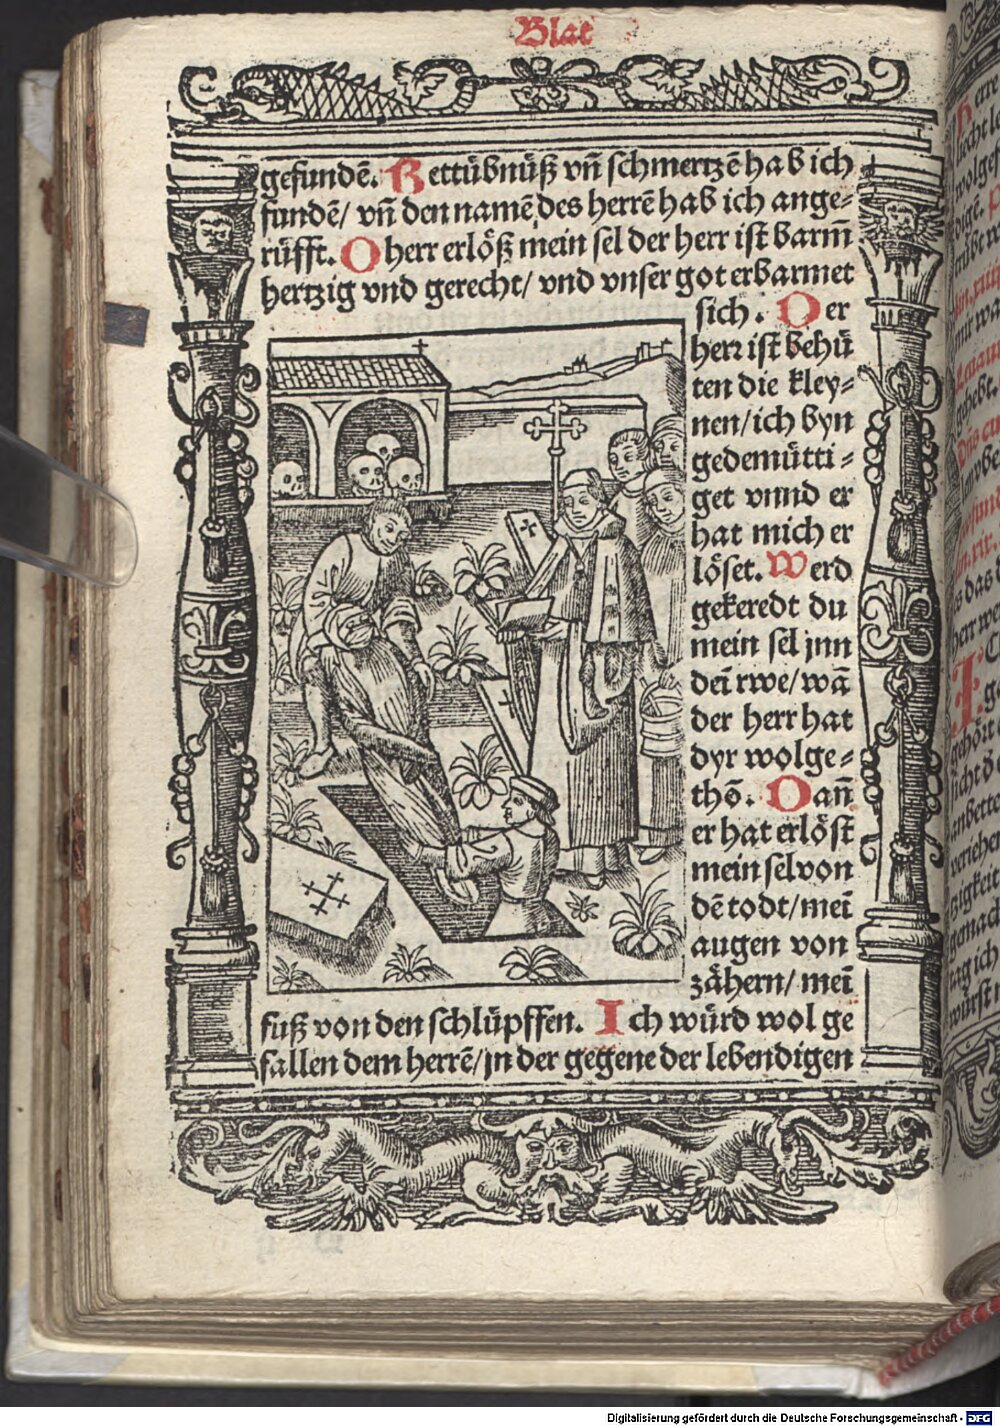 Blat
gefundē. Bettübnüß vñ schmertzē hab ich
fundē/ vñ den namē des herrē hab ich ange⸗
rüfft. O herr erlöß mein sel der herr ist barm̄
hertzig vnd gerecht/ vnd vnser got erbarmet
sich. Der
herr ist behü
ten die kley⸗
nen/ich byn
gedemütti⸗
get vnnd er
hat mich er
löset. Werd
gekeredt du
mein sel jnn
deī rwe/wā
der herr hat
dyr wolge⸗
thō. Dañ
er hat erlöst
mein sel von
dē todt/meī
augen von
zähern/meī
fuß von den schlüpffen. Ich würd wol ge
fallen dem herrē/jn der gegene der lebendigen
Digitalisierung gefördert durch die Deutsche Forschungsgemeinschaft - DFG